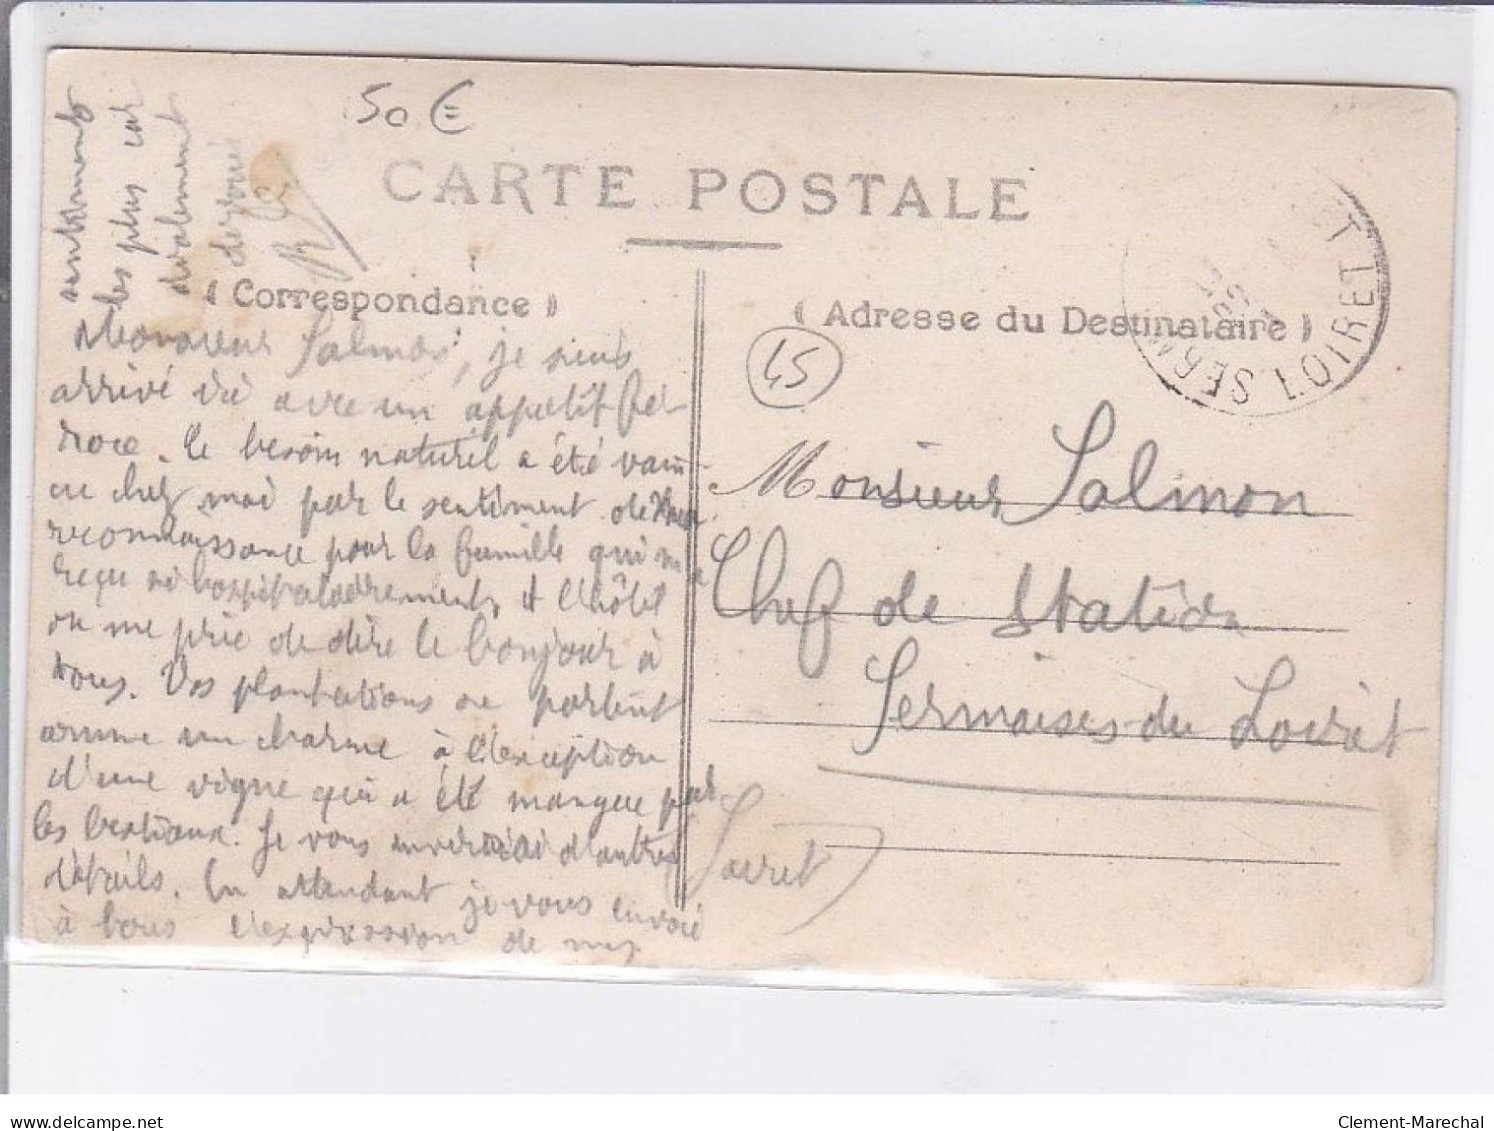 50 €
CARTE POSTALE
( Correspondance )
( Adresse du Destinataire )
LOIRET
45
Monsieur Salmon, je suis
arrivé ici avec un appétit fé-
roce. Le besoin naturel a été vain-
cu chez moi par le sentiment de
reconnaissance pour la famille qui m'a
reçu si hospitalièrement, et l'hôtel
on me prie de dire le bonjour à
tous. Vos plantations se portent
comme un charme à l'exception
d'une vigne qui a été mangée par
les bestiaux. Je vous enverrai d'autres
détails. En attendant je vous envoie
à tous l'expression de mes
sentiments
les plus cor
dialement
dévoués
Monsieur Salmon
Chef de Station
Sermaises-du Loiret
(Loiret)
www.delcampe.net
Clement-Marechal